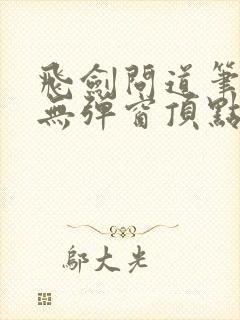 飛劍問道筆
無彈窗頂點
鄔大光